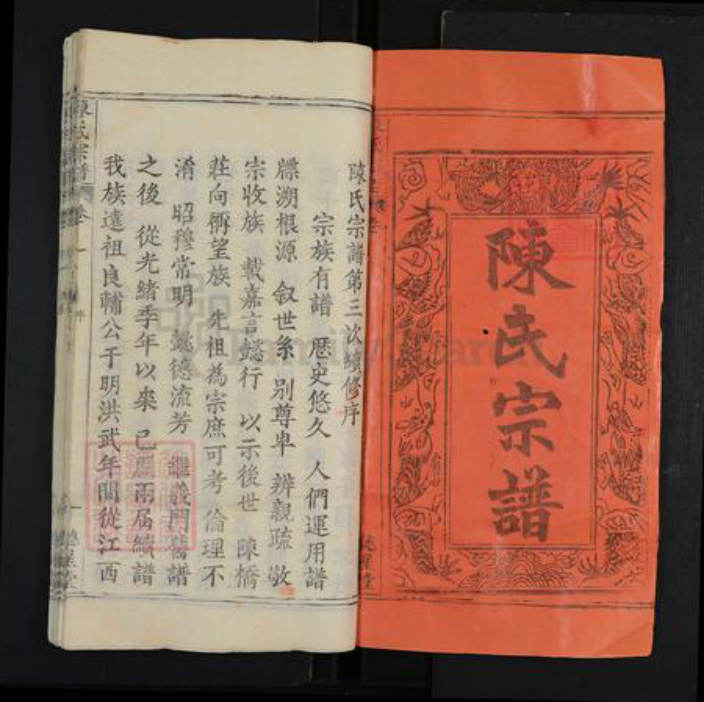 陳氏宗譜
德星堂
陳氏宗譜第三次續修序
宗族有譜 歷史悠久 人們運用譜
牒溯根源 叙世系 别尊卑 辨親疏 敬
宗收族 載嘉言懿行 以示後世 陳橋
莊向稱望族 先祖為宗庶可考 倫理不
淆 昭穆常明 懿德流芳 繼義門舊譜
之後 從光緒季年以來 已歷兩届續譜
我族遠祖良輔公于明洪武年間從江西
陳氏宗譜 卷一 序
一 德星堂